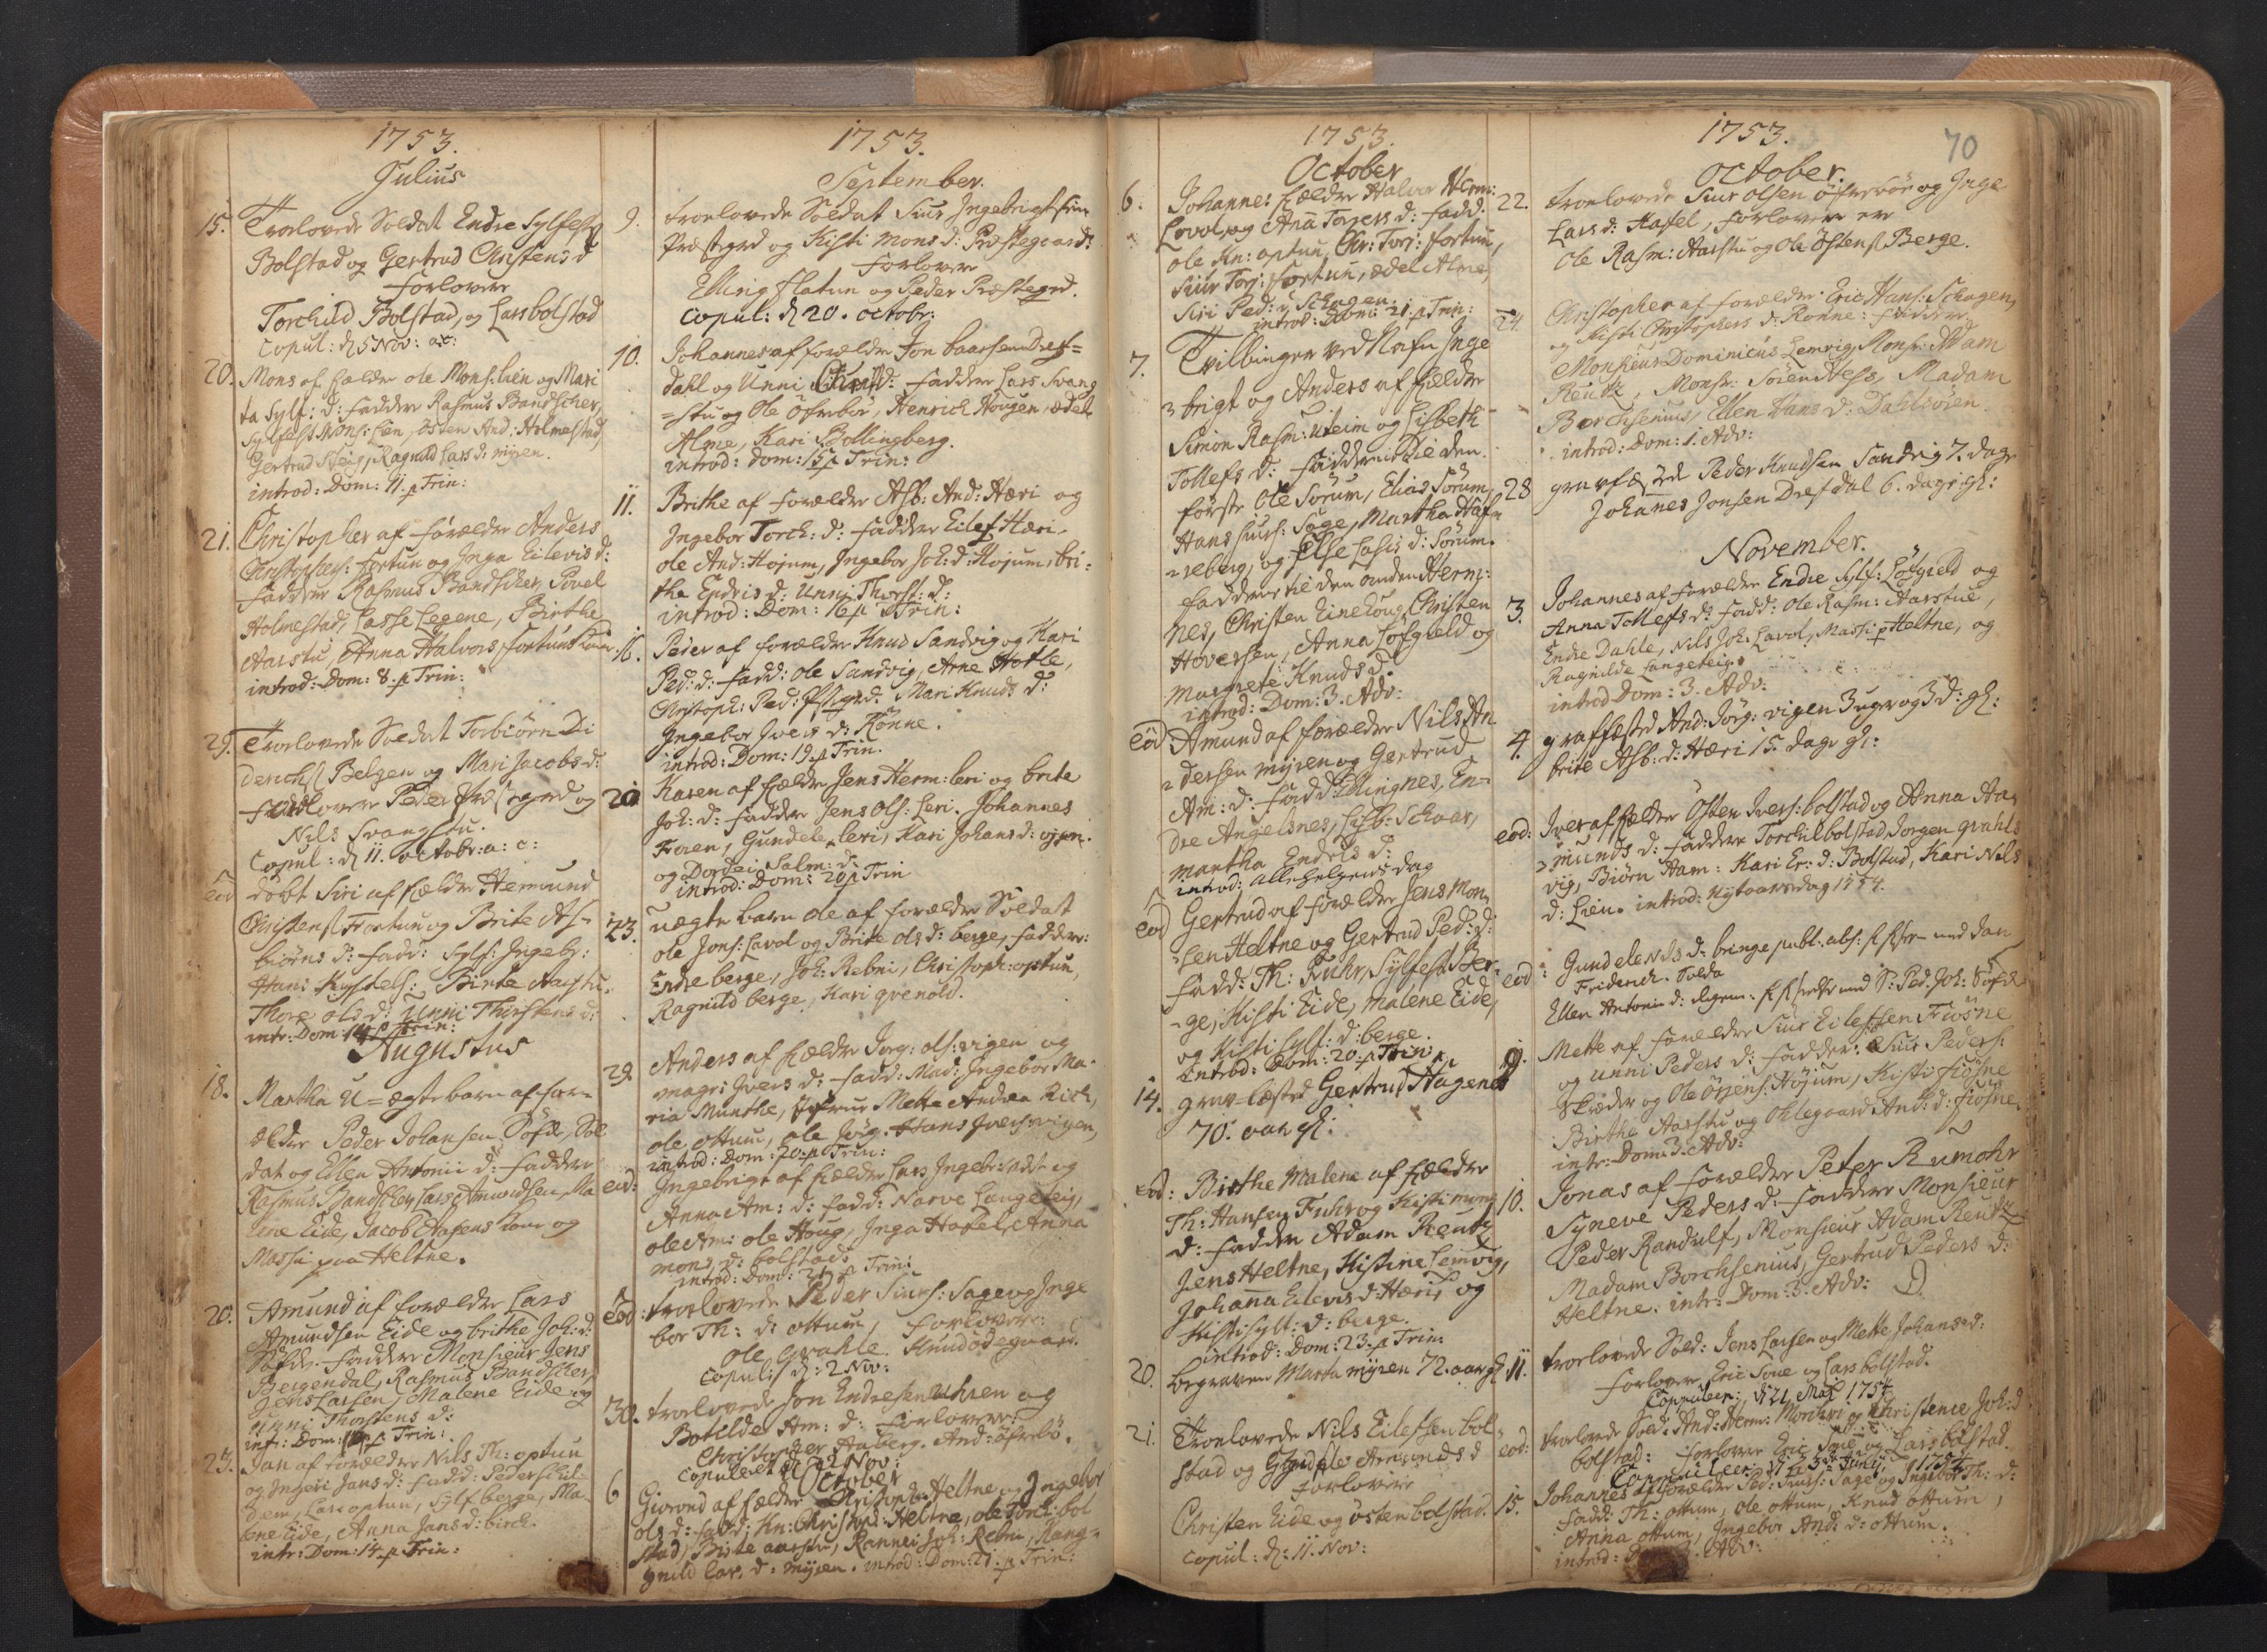 1753.
Julius
15. Troelovede Soldat Endre Sylfests
Bolstad og Gertrud Christens d
forlovere
Torchild Bolstad, og Lars bolstad
Copul: d 5 Nov: a: c:
20. Mons af Fældre ole Mons: Lien og Mari
ta Sylf: d: faddere Rasmus Bandscher,
Sylfest Mons: Lien, østen And: Holmestad,
Gertrud Steig, Ragnild Lars d: myren.
introd: Dom: 11. p Trin:
21. Christopher af forældre Anders
Christophers: fortun og Inga Eilevis d:
faddere Rasmus Bandscher, Povel
Holmestad, Lasse Legene, Birthe
Aarstu, Anna Halvors, fortuns Kone.
introd: Dom: 8. p Trin:
29. Troelovede Soldat Torbiörn Di
derichs Belgen og Mari Jacobs d:
forlovere Peder Præstegrd og
Nils Svangstu.
Copul: d 11. octobr: a: c:
eod döbt Siri af Fældre Hermund
Christens Fortun og Brite As-
biörns d: fadd: Sylf: Ingebr:
Hans Birte Aarstu.
Thore ols d: Unni Thorstens d:
intr: Dom 14 p Trin:
Augustus
18. Martha U-ægte barn af for-
ældre Peder Johansen Söfde, Sol
dat og Ellen Antonii d: faddere
Rasmus Bandscher, Lars Amundsen, Ma
lene Eide, Jacob Kone og
Massi paa Heltne.
20. Amund af forældre Lars
Amundsen Eide og brithe Joh: d:
Söfde. faddere Monsieur Jens
Bergendal, Rasmus Bandscher,
Jens Larsen, Malene Eide og
Unni Thorstens d:
intr: Dom: p Trin:
23. Jan af forældre Nils Th: optun
og Ingeri Jans d: fadd: Peder Skil-
dem, Lars optun, Sylf berge, Ma-
lene Eide, Anna Jans d: birch.
intr: Dom: 14. p Trin:
1753.
September.
9. troelovede Soldat Siur Ingebrigtsen
Præstegrd og Kisti Mons d: Præstegaard:
forlovere
Elling flatun og Peder Præstegrd.
Copul: d 20. octobr:
10. Johannes af forældre Jon baarsen Dref=
dahl og Unni d: faddere Lars Svang
=stu og Ole öfrebö, Henrich Hougen, ædel
Alme, Kari Bollingberg.
introd: dom: 15 p Trin:
11. Brithe af forældre Asb: And: Hæri og
Ingebor Torch: d: faddere Eilef Hæri,
ole And: Hojum, Ingebor Joh: d: Hojum, bri:
the Endris d: Unni Thorst: d:
introd: Dom: 16 p Trin:
16. Peder af forældre Knud Sandvig og Kari
Ped: d: fadd: ole Sandvig, Arne Hotle,
Christoph: Ped: Pstgrd. Mari Knuds d:
Ingebor Ivers d: Rönne.
introd: Dom: 19. p Trin.
20 Karen af Fældre Jens Herm: leri og brita
Joh: d: faddere Jens Ols: Leri. Johannes
Feren, Gundele leri, Kari Johans d: vigen.
og Dordei Salm: d:
introd: Dom: 20 p Trin
23. uægte barn ole af forældre Soldat
ole Jons: Lavol og Brite ols d: berge, faddere:
Endre berge, Joh: Rebni, Christoph: optun,
Ragnild berge, Kari qvenold.
29 Anders af Fældre Jorg: ols: vigen og
magri: Ivers d: fadd: Mad: Ingebor Ma-
ria Munthe, Jomfrue Mette Andrea Rich,
ole ottum, ole Jörg: Hans Ivers: vigen,
introd: Dom: 20. p Trin:
eod: Ingebrigt af Fældre Lars Ingebr: og
Anna Am: d: fadd: Narve Langeteig,
ole Am: ole Houg, Inga Hatel, Anna
mons d: bolstad:
introd: Dom: 21 p Trin:
eod: troelovede Peder Siurs: Sage og Inge
bor Th: d: ottum, forlovere:
ole qvahle. Knud ödegaard.
Copulis d: 2 Nov:
30. troelovede Jon Endresen uhren og
Botilde Am: d: forlovere:
Christopher Aaberg. And: öfrebö.
Copuleret d 22 Nov:
October
6 Giorond af Fældre Christoph: Heltne og Ingebor
ols d: fadd: Kn: Christoph: Heltne, ole Torch: bol
stad, Birte aarstu, Rannei Joh: Rebni, Rang=
gnild Lar: d: myren. introd: Dom: 21. p Trin:
1753.
October
6. Johannes Fældre Halvor Herm:
Lovol, og Anna Torgers d: fadd:
Ole Kn: optun, Chr: Torj: fortun,
Siur Torj: fortun, ædel Alme,
Siri Ped: d Schagen.
introd: Dom: 21. p Trin:
7. Tvillinger ved Nafn Inge
brigt og Anders af Fældre
Simon Rasm: Uteim og Lisbeth
Tollefs d: faddere til den
første Ole Sørum, Elias Sørum,
Hans Siurs: Sage, Martha Haf=
=reberg, og Else Lasis d: Sørum.
faddere til den anden Herm:
Nes, Christen Einehoug, Christen
Hoversen, Anna Löfgield og
Margrete Knuds d.
introd: Dom: 3. Adv:
eod Amund af forældre Nils An
dersen myren og Gertrud
Am: d: fadd: Elling nes, En-
dre Angelsnes, Lisb: Schaar,
martha Endrid d:
introd: alle helgens dag
eod Gertrud af forældre Jens Mon,
sen Heltne og Gertrud Ped: d:
fadd: Th: Fuhr, Sylfest Ber-
-ge, Kisti Eide, Malene Eide,
og Kisti Sylf: d: berge.
Introd: Dom: 20. p Trin:
14. grav-fæsted Gertrud Hagenes
70. aar gl:
eod: Birthe Malene af Fældre
Th: Hansen Fuhr og Kisti mons
d: faddere Adam Reutz
Jens Heltne, Kistine Lemvig,
Johanna Eilevis d: Hæri, og
Kisti Sylf: d: berge.
introd: Dom: 23. p Trin:
20. begraven Marta myren 72. aar gl.
21. Troelovede Nils Eilefsen bol=
stad og Gundele Amunds d
forlovere
Christen Eide og østen bolstad.
Copul: d: 11. Nov:
1753.
70
October.
22. troelovede Siur Olsen öfrebö og Inge
Lars d: Hafel, forlovere ere
Ole Rasm: Aarstu og Ole Östens Berge.
24. Christopher af forældre: Eric Hans: Schagen,
og Kisti Christophers d: Rönne: faddere
Monsieur Dominicus Lemvig, Monsr: Adam
Reutz, Monsr: Sören Hess, Madam
Borchsenius, Ellen Hans d: Dahlsören.
introd: Dom: 1. Adv:
28 gravfæsted Peder Knudsen Sandvig 7. dage
Johanes Jonsen Drefdal 6. dage gl:
November.
3. Johannes af forældre Endre Sylf: Löfgield og
Anna Tollefs d: fadd: Ole Rasm: Aarstue,
Endre Dahle, Nils Joh: Lavol, Massi p Heltne, og
Ragnilde Langeteig.
introd Dom: 3. Adv:
4. graffæsted And: Jörg: vigen 3 uger og 3 d: gl:
brite Asb: d: Hæri 15. dage gl:
eod: Iver af Fældre Östen Ivers: bolstad og Anna Aa-
munds d: faddere Torchil bolstad, Jorgen qvahls
vig, Biörn Aam: Kari Er: d: Bolstad, Kari Nils
d: Lien. introd: Nytaarsdag 1754.
eod: Gundele Nils d: bringe publ: abs: med Dan
Friderich Tolda
Ellen Antonii d: ligem: med S: Ped: Joh: Söfde
9. Mette af forældre Siur Eilefsen Fiösne
og Unni Peders d: fadder: Siur Peders:
Skræder og Ole Örjens: Höjum, Kisti fiösne
Birthe Aarstu og Ohlegaard And: d: fiösne.
intr: Dom: 3. Adv:
10. Jonas af forældre Peter Rumohr
Syneve Peders d: faddere Monsieur
Peder Randulf, Monsieur Adam Reutz
Madam Borchsenius, Gertrud Peders d:
Heltne. intr: Dom: 3. Adv:
11. troelovede Sold: Jens Larsen og Mette Johans d:
forlovere Eric Sone og Lars bolstad.
Coppuleer: d 21. Maj 1754
eod: troelovede Sold: And: Herm: Morchri og Christence Joh: d
bolstad: forlovere Eric Sone og Lars bolstad.
Coppuleer: d Junij 1754
15. Johannes af forældre Ped: Siurs: Sage og Ingebor Th: d:
fadd: Th: ottum, ole ottum, Knud ottum,
Anna ottum, Ingebor And: d: ottum.
introd: Adv: